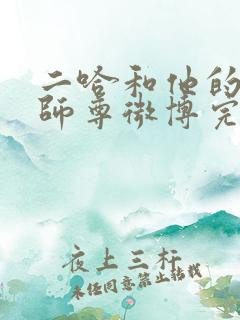 二哈和他的
師尊微博完
夜上三杆
未经同意禁止转载